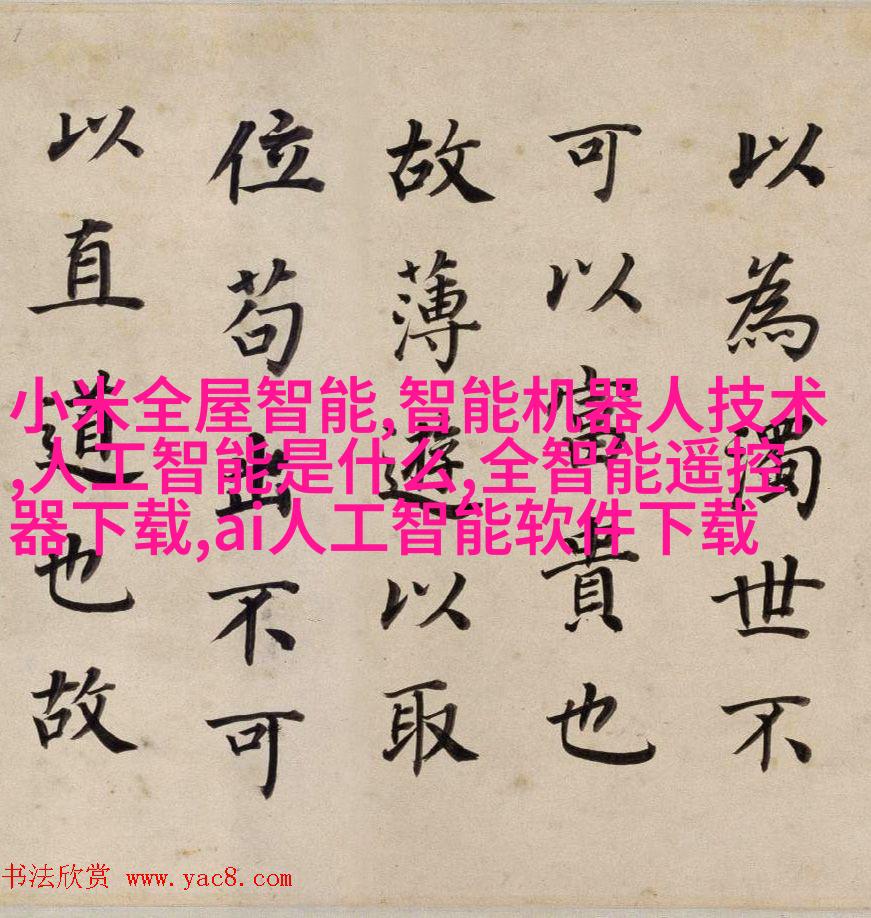 以為濁世不
可以富貴也
故薄遊以取
位苟出不可
以直道也故
小米全屋智能,智能机器人技术
,人工智能是什么,全智能遥控
器下载,ai人工智能软件下载
书法欣赏 www.yac8.com